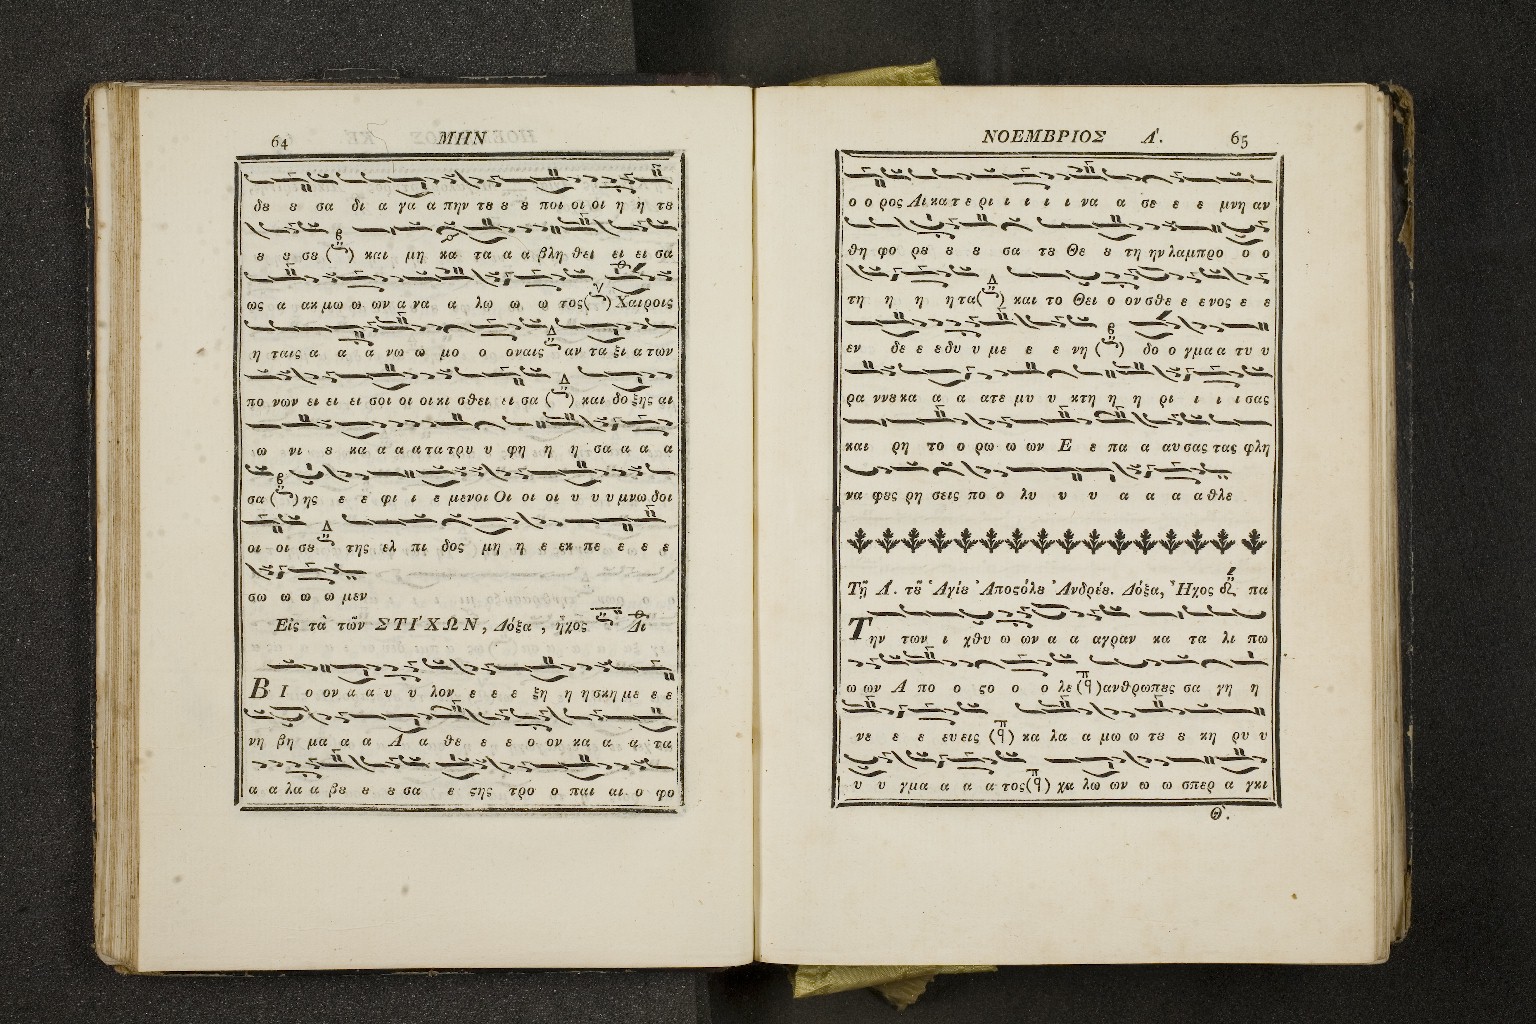 64 ΜΗΝ
δȣ ȣ σα δι α γα α πην τȣ ȣ ȣ ποι οι οι η η τȣ
ȣ ȣ σȣ ( ) και μη κα τα α α βλη θει ει ει σα
ως α ακ μω ω ων α να α λω ω ω τος( ) Χαιροις
η ταις α α α νω ω μο ο οναις αν τα ξι α των
πο νων ει ει ει σοι οι οικι σθει ει σα ( ) και δο ξης αι
ω νι ȣ κα α α α τα τρυ υ φη η η σα α α α
σα ( ) ης ε ε φι ι ε μενοι Οι οι οι υ υ υ μνω δοι
οι οι σȣ Δ της ελ πι δος μη η ε εκ πε ε ε ε
σω ω ω ω μεν
Εἰς τὰ τῶν ΣΤΙΧΩΝ, Δόξα, ἦχος Δι
Β Ι ο ον α α υ υ λον ε ε ε ξη η η σκη με ε ε
νη βη μα α α Α α θε ε ε ο ον κα α α τα
α α λα α βȣ ȣ ȣ σα ε ϛης τρο ο παι αι ο φο
ΝΟΕΜΒΡΙΟΣ Λ'. 65
ο ο ρος Δι κα τε ρι ι ι ι ι να α σε ε ε μνη αν
θη φο ρȣ ȣ ȣ σα τȣ Θε ȣ τη ην λαμπρο ο ο
τη η η η τα( ) και το Θει ο ον σθε ε ε νος ε ε
εν δε ε εδυ υ με ε ε νη ( ) δο ο γμα α τυ υ
ρα ννȣ κα α α ατε μυ υ κτη η η ρι ι ι ι σας
και ρη το ο ρω ω ων Ε ε πα α αυ σας τας φλη
να φȣς ρη σεις πο ο λυ υ υ α α α αθλε
Τῇ Λ'. τȣ͂ Ἁγίȣ Ἀποϛόλȣ Ἀνδρέȣ. Δόξα, Ἦχος πα
Την των ι χθυ ω ων α α αγραν κα τα λι πω
ω ων Α πο ο ϛο ο ο λε ( )ανθρωπȣς σα γη η
νε ε ε ευεις ( ) κα λα α μω ω τȣ ȣ κη ρυ υ
υ υ γμα α α α τος( ) χα λω ων ω ω σπερ α γκι
Θ'.